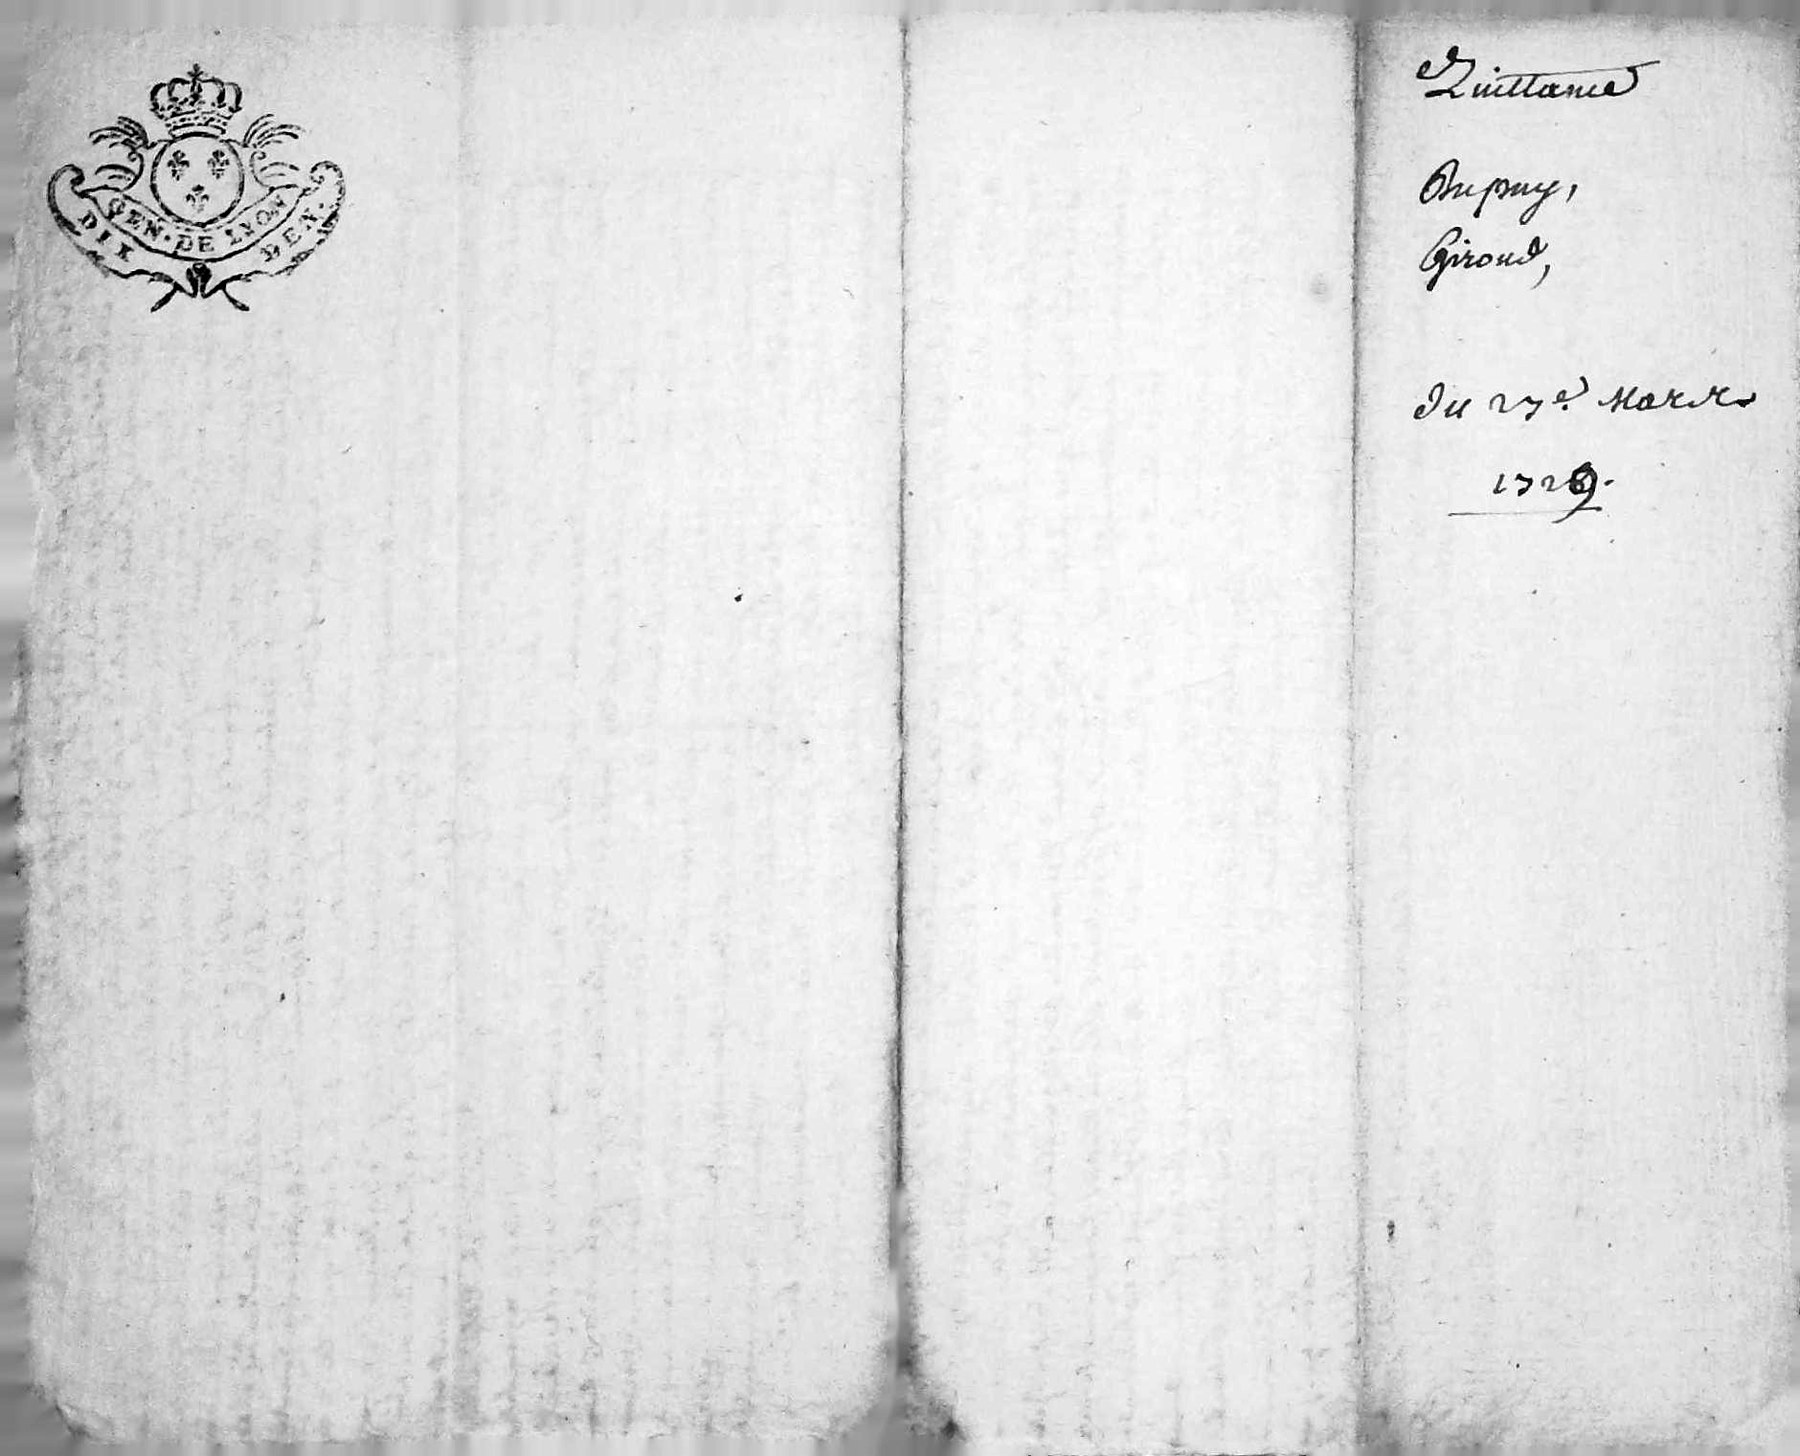 GEN. DE LYON
DIX DEN.
Quittance
Dupuy,
Giroud,
du 27e. Mars
1729.